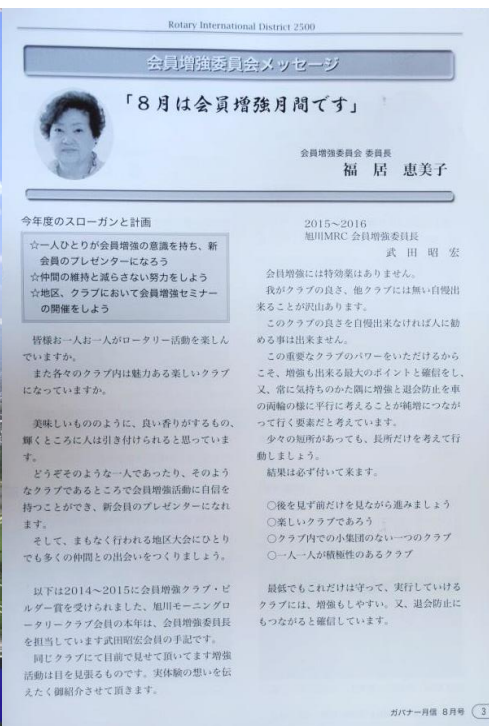 Rotary International District 2500
会員増強委員会メッセージ
「8月は会員増強月間です」
会員増強委員会 委員長
福 居 恵美子
今年度のスローガンと計画
☆一人ひとりが会員増強の意識を持ち、新
会員のプレゼンターになろう
☆仲間の維持と減らさない努力をしよう
☆地区、クラブにおいて会員増強セミナー
の開催をしよう
皆様お一人お一人がロータリー活動を楽しん
でいますか。
また各々のクラブ内は魅力ある楽しいクラブ
になっていますか。
美味しいもののように、良い香りがするもの、
輝くところに人は引き付けられると思っていま
す。
どうぞそのような一人であったり、そのよう
なクラブであるところで会員増強活動に自信を
持つことができ、新会員のプレゼンターになれ
ます。
そして、まもなく行われる地区大会にひとり
でも多くの仲間との出会いをつくりましょう。
以下は2014～2015に会員増強クラブ・ビ
ルダー賞を受けられました、旭川モーニングロ
ータリークラブ会員の本年は、会員増強委員長
を担当しています武田昭宏会員の手記です。
同じクラブにて目前で見せて頂いてます増強
活動は目を見張るものです。実体験の想いを伝
えたく御紹介させて頂きます。
2015～2016
旭川MRC 会員増強委員長
武 田 昭 宏
会員増強には特効薬はありません。
我がクラブの良さ、他クラブには無い自慢出
来ることが沢山あります。
このクラブの良さを自慢出来なければ人に勧
める事は出来ません。
この重要なクラブのパワーをいただけるから
こそ、増強も出来る最大のポイントと確信をし、
又、常に気持ちのかた隅に増強と退会防止を車
の両輪の様に平行に考えることが純増につなが
って行く要素だと考えています。
少々の短所があっても、長所だけを考えて行
動しましょう。
結果は必ず付いて来ます。
○後を見ず前だけを見ながら進みましょう
○楽しいクラブであろう
○クラブ内での小集団のない一つのクラブ
○一人一人が積極性のあるクラブ
最低でもこれだけは守って、実行していける
クラブには、増強もしやすい。又、退会防止に
もつながると確信しています。
ガバナー月信 8月号 3